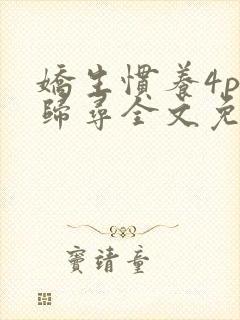 嬌生慣養4p
歸尋全文免
竇靖童